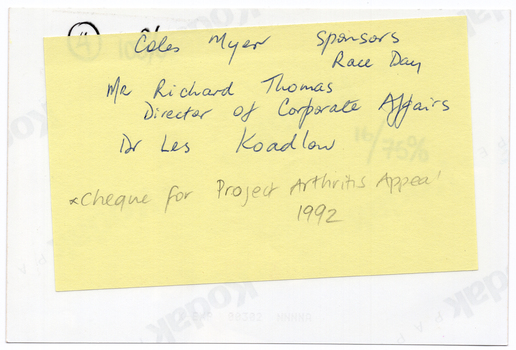 4
Coles Myer Sponsors
Race Day
Mr Richard Thomas
Director of Corporate Affairs
Dr Les Koadlow
16/75%
*Cheque for Project Arthritis Appeal'
1992
Kodak
Kodak
Kodak
Kodak